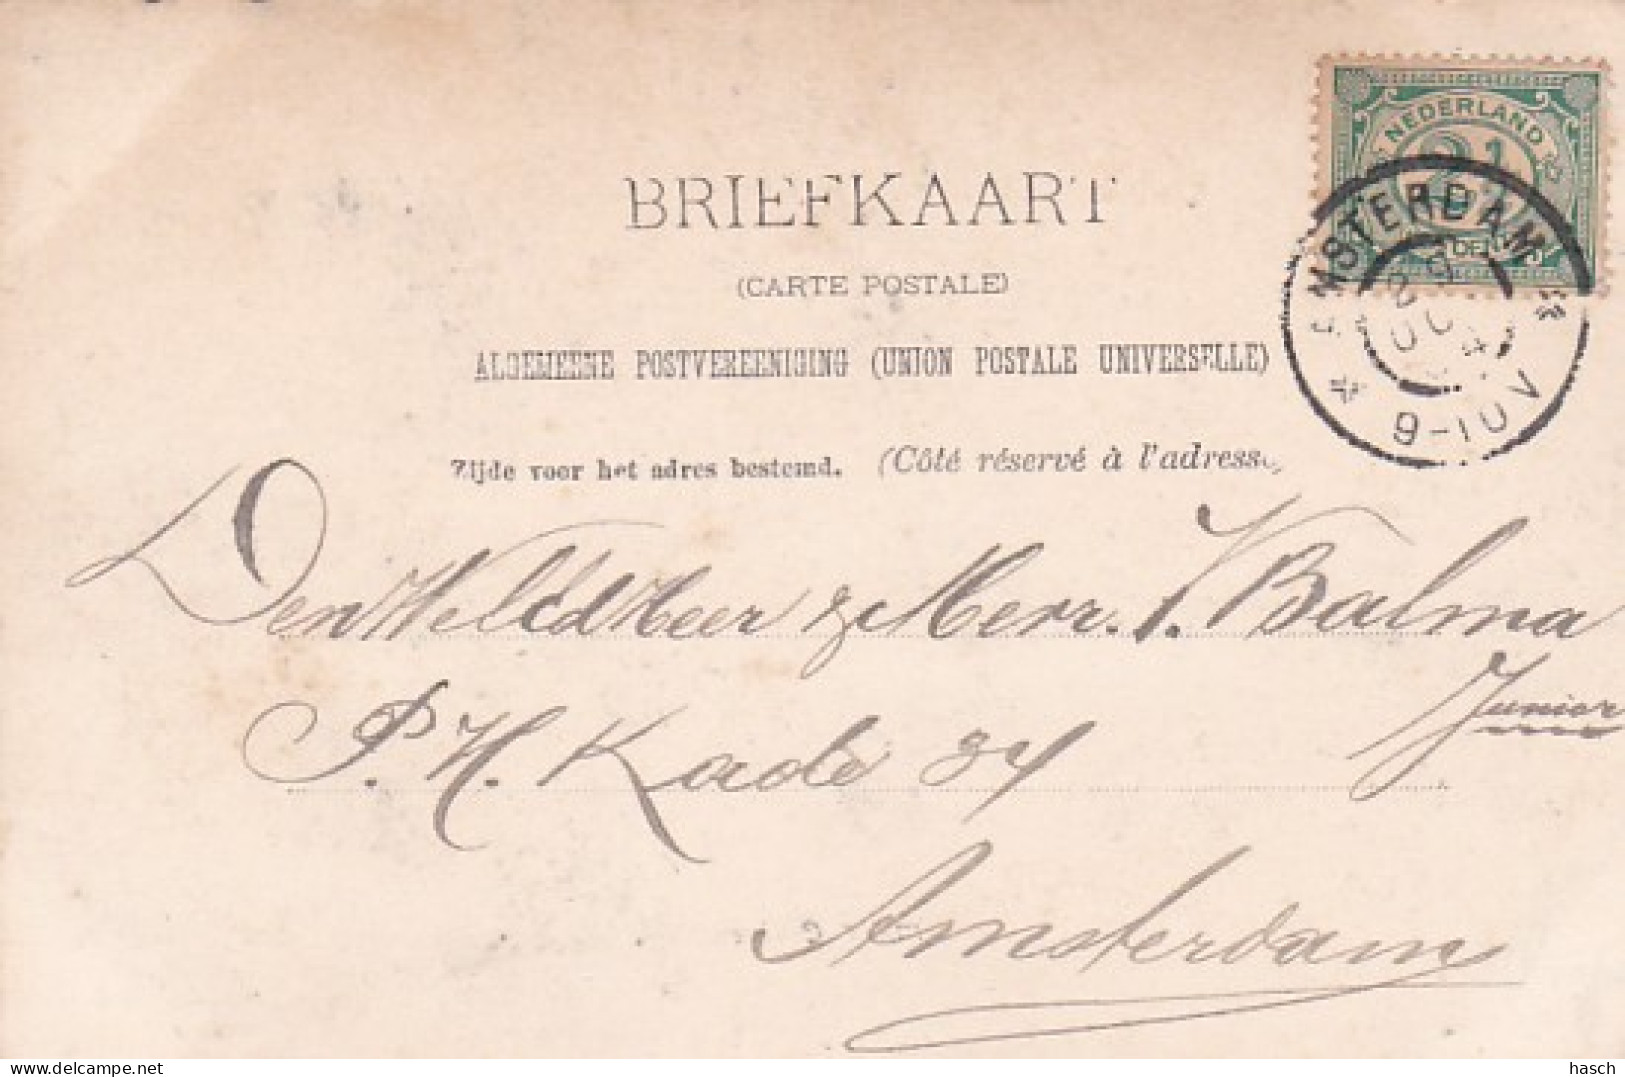 NEDERLAND
2½
AMSTERDAM
9-10V
BRIEFKAART
(CARTE POSTALE)
ALGEMEENE POSTVEREENIGING (UNION POSTALE UNIVERSELLE)
Zijde voor het adres bestemd. (Côté réservé à l'adresse
Den WelEd Heer & Merr. J. Balma
Junior
P. H. Kade 34
Amsterdam
hasch